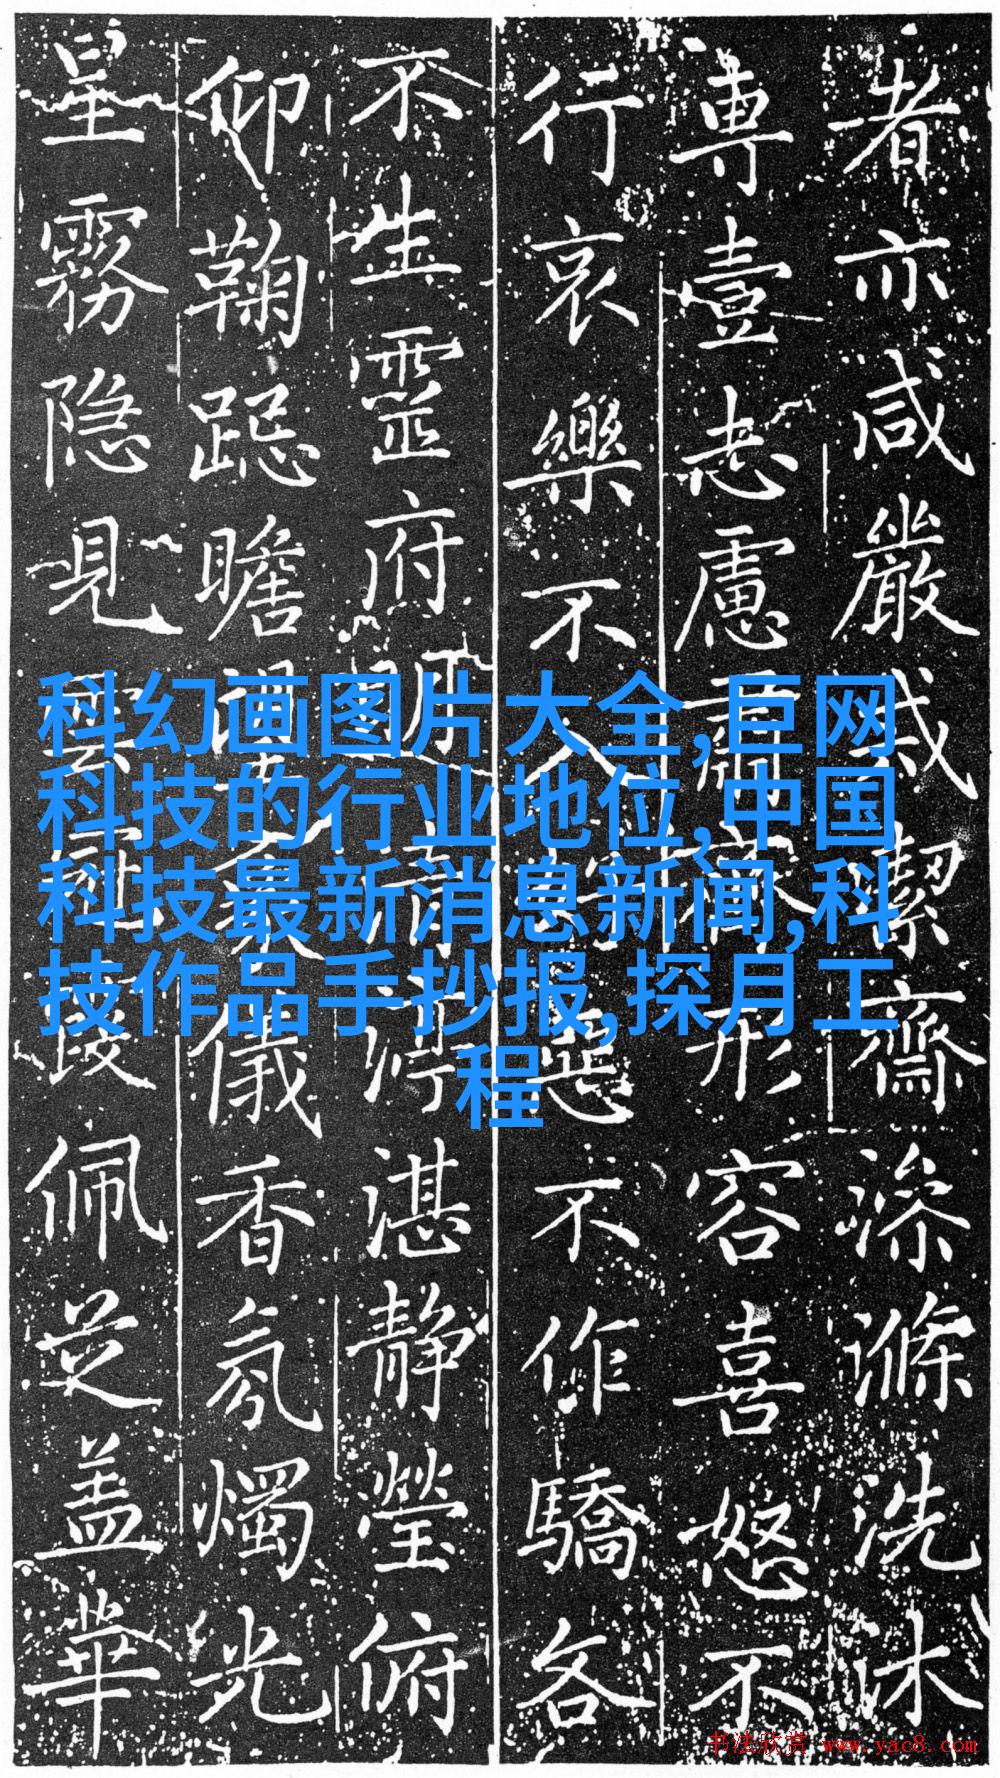 者亦咸嚴誡潔齋滌洗沐
專壹志慮肅形容喜怒不
行哀樂不入惡不作驕各
不生靈府湛静瑩俯
仰鞠跽瞻儀香氛燭光
星霧隐見雲佩芝盖華
科幻画图片大全,巨网
科技的行业地位,中国
科技最新消息新闻,科
技作品手抄报,探月工
程
书法欣赏 www.yac8.com